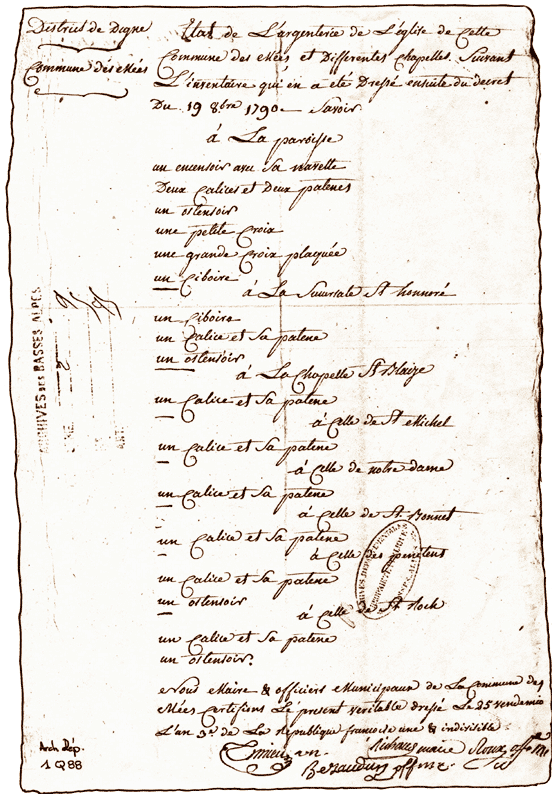 District de Digne
Commune des Mées
Etat de L'argenterie de L'église de Cette
Commune des Mées et Differentes chapelles. Suivant
L'inventaire qui en a eté Dressé ensuite du decret
Du 19 8.bre 1790 Savoir
á La paroisse
un encensoir avec Sa navette
Deux Calices et Deux patenes
un ostensoir
une petite Croix
une grande Croix plaquée
un Ciboire
á La Sucursale St honnoré
un Ciboire
un Calice et Sa patene
un ostensoir
á La Chapelle St Blaize
un Calice et Sa patene
á Celle de St Michel
un Calice et Sa patene
á Celle de notre dame
un Calice et Sa patene
á Celle de St Bonnet
un Calice et Sa patene
á Celle des penitent
un Calice et Sa patene
un ostensoir
á Celle de St Rock
un Calice et Sa patene
un ostensoir.
Nous Maire & officiers Municipaux de La Commune des
Mées Certifions Le present veritable dressé Le 25 vendemiere
L'an 3e de La République francoise une & indivisible
maire Roux off
off mu
ARCHIVES DES BASSES ALPES
Arch Dép.
1 Q 88